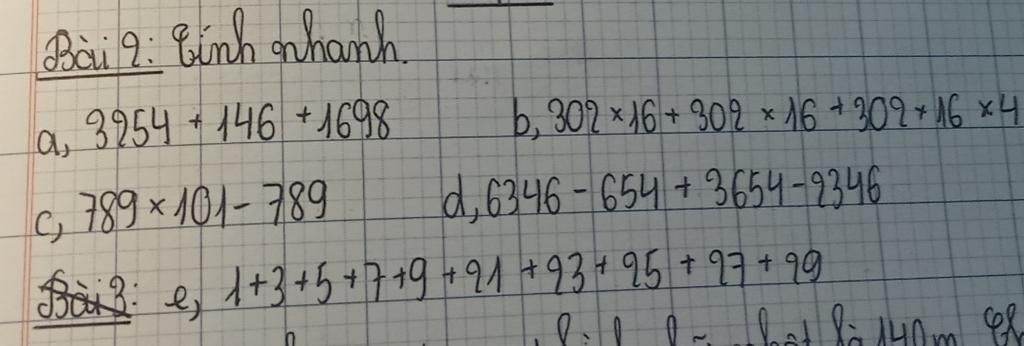 Bài 2: Tính nhanh.
a, 3254 + 146 + 1698 b, 302 × 16 + 302 × 16 + 302 × 16 × 4
c, 789 × 101 - 789 d, 6346 - 654 + 3654 - 2346
Bài 3: e, 1 + 3 + 5 + 7 + 9 + 21 + 23 + 25 + 27 + 29
là 140m